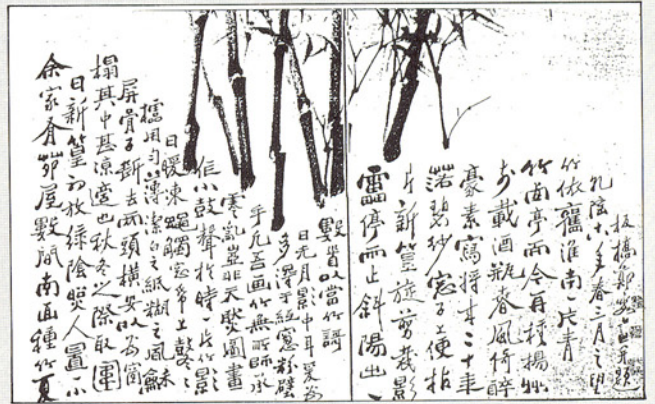 余家有茆屋數間南面種竹夏
日新篁初放綠陰照人置一小
榻其中甚涼適也秋冬之際取圍
屏骨子斷去兩頭橫安以為窗
櫺用勻薄潔白之紙糊之風和
日暖凍蠅觸窗帋上鼕〻
作小鼓聲於時一片竹影
零亂豈非天然圖畫
乎凡吾畫竹無所師承
多得于紙窗粉壁
日光月影中耳
數首以當竹譜
雷停雨止斜陽出一
片新篁旋剪裁影
落碧紗窗子上便拈
豪素寫將來二十年
前載酒瓶春風倚醉
竹西亭而今再種揚州
竹依舊淮南一片青
乾隆十八年春三月之望
板橋鄭燮畫并題